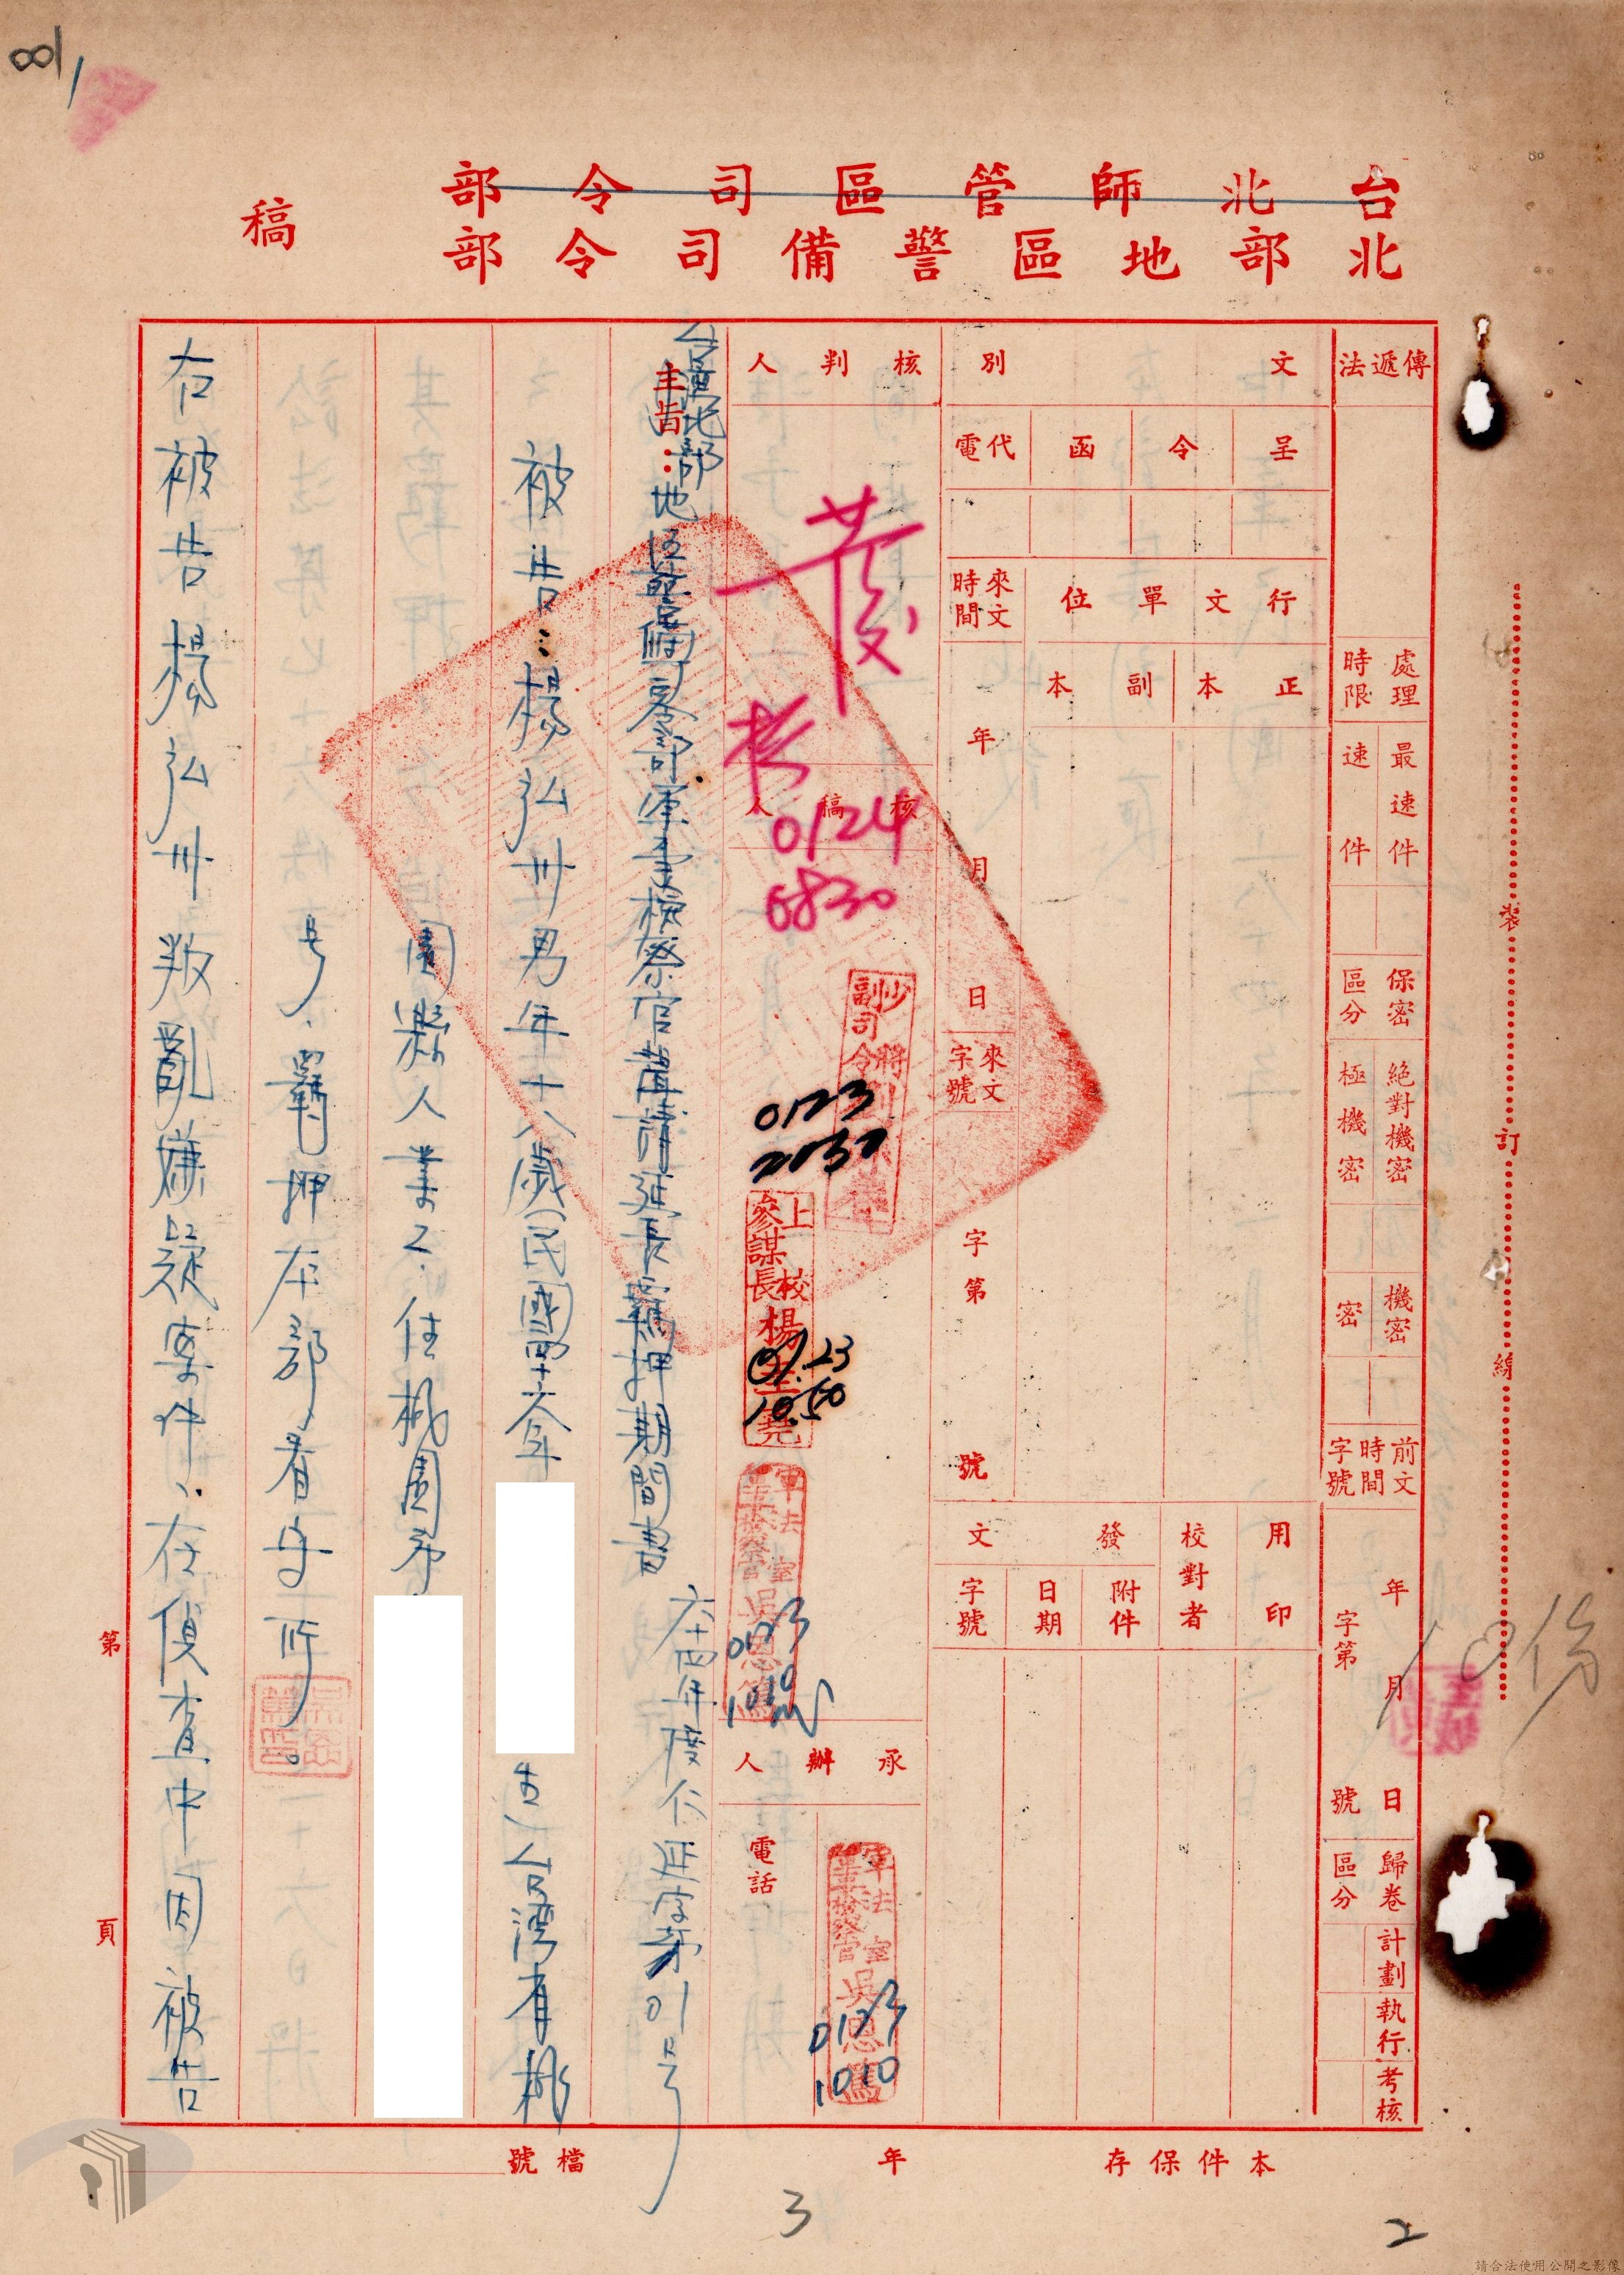 001
台北師管區司令部
北部地區警備司令部
稿
傳遞法
處理時限
最速件
速件
保密區分
絕對機密
極機密
機密
密
前文時間字號
年 月 日
字第 號
歸卷區分
計劃
執行
考核
文別
呈
令
函
代電
行文單位
正本
副本
來文時間
年
月
日
來文字號
字第
號
用印
校對者
發文
附件
日期
字號
核判人
發
0124
0830
核稿人
副司令
少將
0123
2030
上校
參謀長
楊
01.23
10.50
軍法室
軍事檢察官
吳恩篤
0123
1010
承辦人
電話
軍法室
軍事檢察官
吳恩篤
0123
1010
主旨：
台灣北部地區警備司令部軍事檢察官聲請延長羈押期間書
六十四年度仁延字第01号
被告：楊弘卅男年十八歲（民國四十六年
生）台灣省桃
園縣人業工、住桃園市
号、羈押本部看守所。
右被告楊弘卅叛亂嫌疑案件、在偵查中因被告
第
頁
裝
訂
線
10份
本件保存
年
檔號
3
2
請合法使用公開之影像